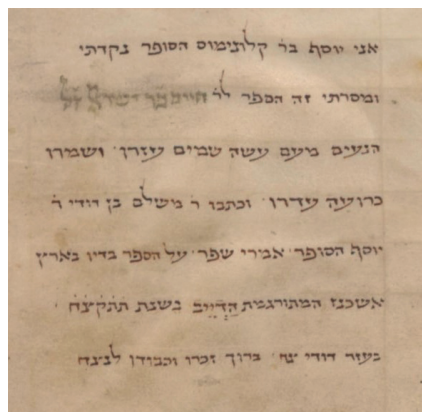 אני יוסף בר קלונימוס הסופר נקדתי
ומסרתי זה הספר לר׳
הנעים מעם עשה שמים עזרו׳ ושמרו
כרועה עדרו׳ וכתבו ר׳ משלם בן דודי ר׳
יוסף הסופר׳ אמרי שפר׳ על הספר בדיו בארץ
אשכנז המתורגמת בשנת
בעזר דודי ברוך זכרו וכבודו לנצח